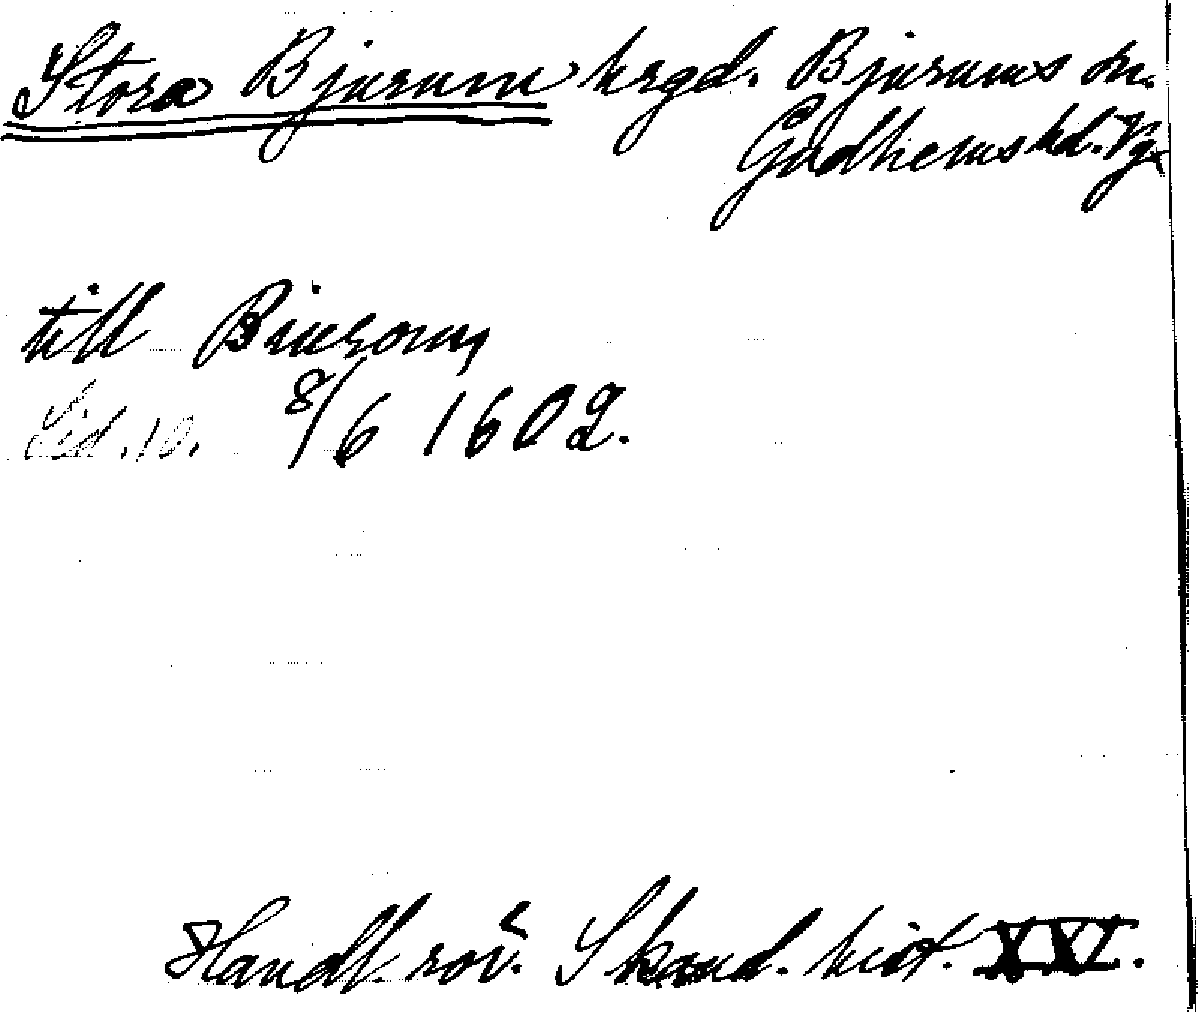 Stora Bjurum hrgd. Bjurums sn.
Gudhems hd. Vg.
till Biurom,
Sid. 10. 8/6 1602.
Handl. rör. Skand. hist. XXI.